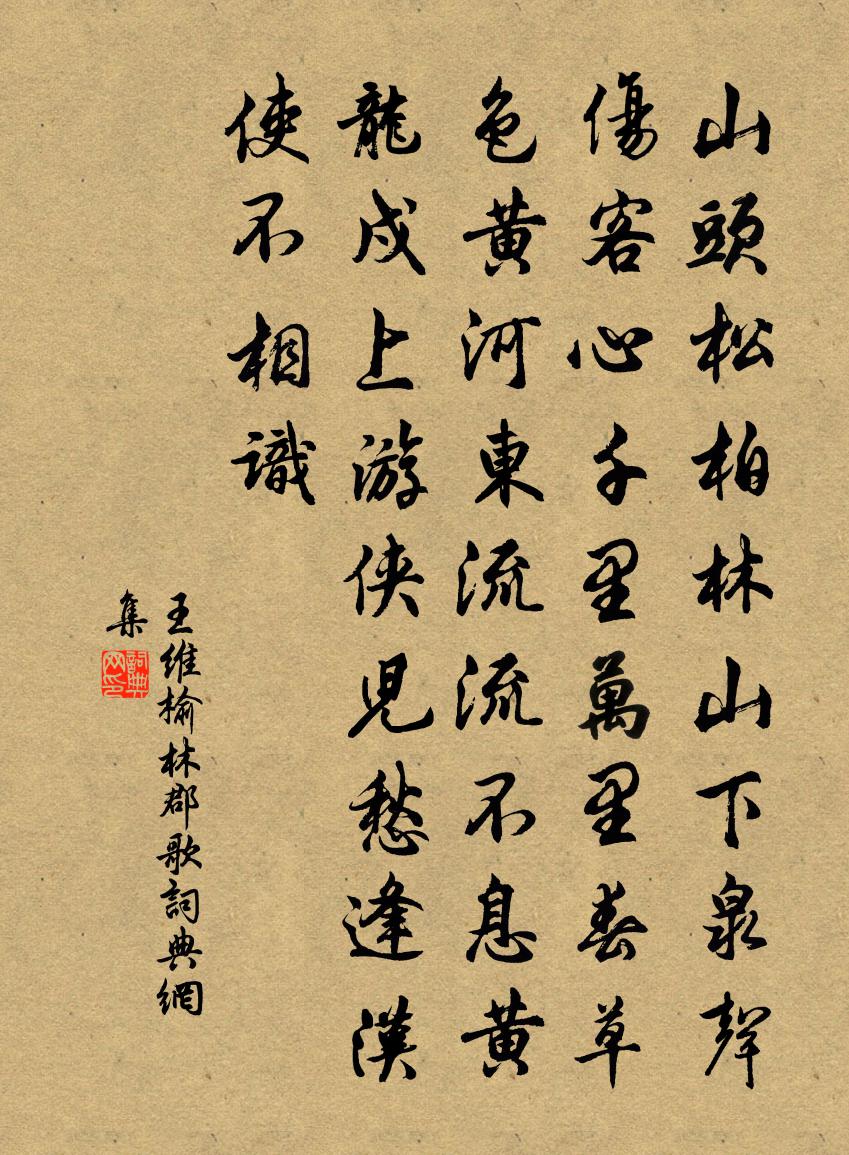 山頭松柏林山下泉聲
傷客心千里萬里春草
色黄河東流流不息黄
龍戍上游俠兒愁逢漢
使不相識
王維榆林郡歌詞典網
集
詞典
网印